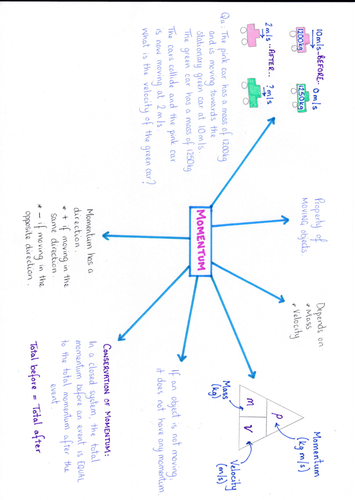 MOMENTUM
Property of
MOVING objects.
Depends on
* Mass
* Velocity
Momentum
(kg m/s)
p
m
v
Mass
(kg)
Velocity
(m/s)
If an object is not moving,
it does not have any momentum
CONSERVATION OF MOMENTUM:
In a closed system, the total
momentum before an event is EQUAL
to the total momentum after the
event.
Total before = Total after
Momentum has a
direction.
* + if moving in the
same direction
* - if moving in the
opposite direction.
10m/s..BEFORE..0m/s
1200kg
1250kg
2m/s..AFTER..?m/s
Qu: The pink car has a mass of 1200kg
and is moving towards the
stationary green car at 10m/s.
The green car has a mass of 1250kg
The cars collide and the pink car
is now moving at 2m/s.
What is the velocity of the green car?